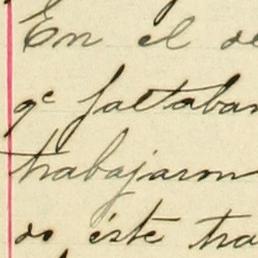 En el de
qe faltaban
trabajaron
do éste tra